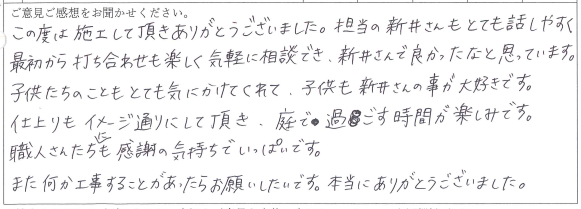 ご意見ご感想をお聞かせください。
この度は施工して頂きありがとうございました。担当の新井さんもとても話しやすく
最初から打ち合わせも楽しく気軽に相談でき、新井さんで良かったなと思っています。
子供たちのこともとても気にかけてくれて、子供も新井さんの事が大好きです。
仕上りもイメージ通りにして頂き、庭で過ごす時間が楽しみです。
職人さんたちにも感謝の気持ちでいっぱいです。
また何か工事することがあったらお願いしたいです。本当にありがとうございました。